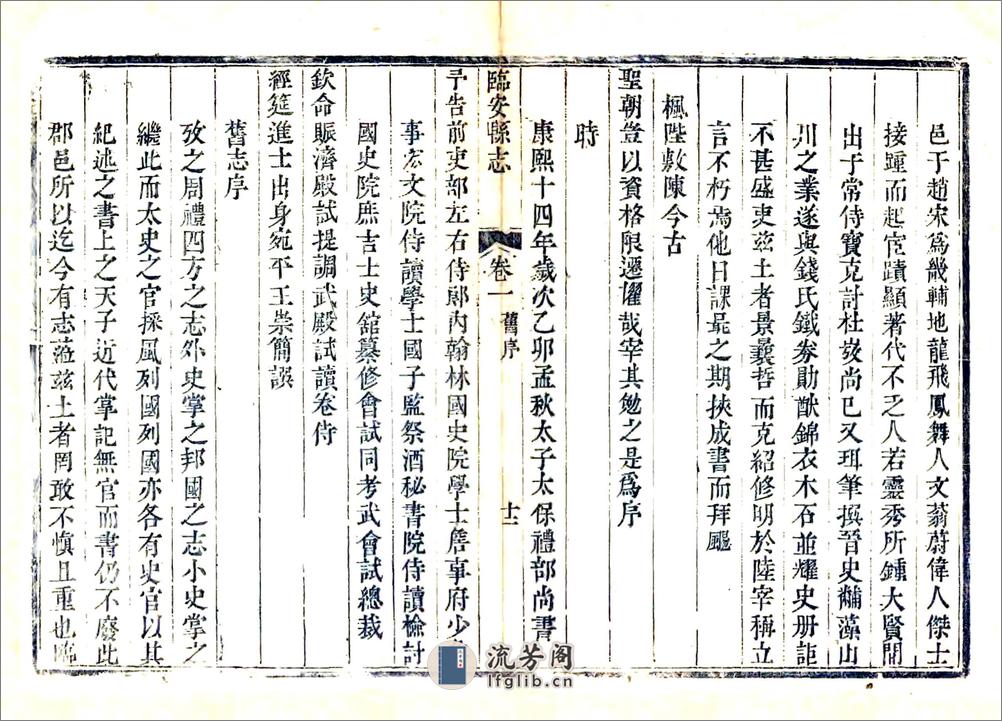 邑于趙宋爲畿輔地龍飛鳳舞人文蓊蔚偉人傑士
接踵而起宦蹟顯著代不乏人若靈秀所鍾大賢間
出于常侍寶克討杜弢尚已又珥筆撰晉史黼藻山
川之業遂與錢氏鐵劵勛猷錦衣木石並耀史册詎
不甚盛吏茲土者景曩哲而克紹修明於陸宰稱立
言不朽焉他日課最之期挾成書而拜颺
楓陛敷陳今古
聖朝豈以資格限遷擢哉宰其勉之是爲序
時
康熙十四年歲次乙卯孟秋太子太保禮部尚書
臨安縣志
卷一
舊序
十二
予告前吏部左右侍郎内翰林國史院學士詹事府少
事宏文院侍讀學士國子監祭酒秘書院侍讀檢討
國史院庶吉士史舘纂修會試同考武會試總裁
欽命賑濟殿試提調武殿試讀卷侍
經筵進士出身宛平王崇簡譔
舊志序
攷之周禮四方之志外史掌之邦國之志小史掌之
繼此而太史之官採風列國列國亦各有史官以其
紀述之書上之天子近代掌記無官而書仍不廢此
郡邑所以迄今有志蒞茲土者罔敢不慎且重也臨
流芳阁
lfglib.cn